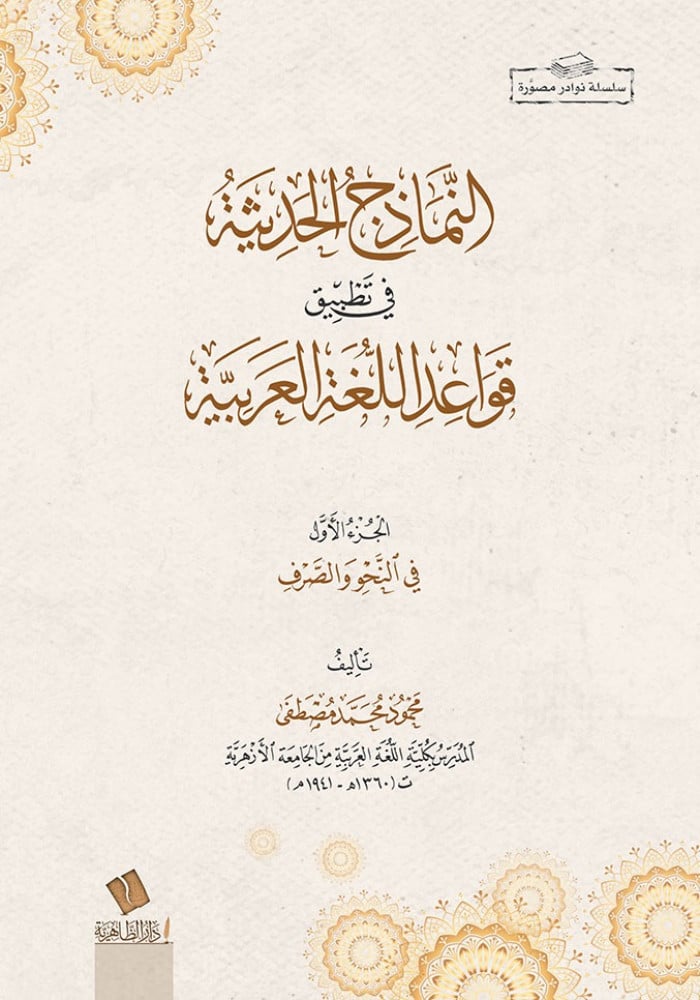 سلسلة نوادر مصوَّرة
النَّمَاذِجُ الحَدِيثَةُ
في تَطْبِيْقِ
قَوَاعِدِ اللُّغَةِ العَرَبِيَّةِ
الجُزْءُ الأَوَّلُ
في النَّحْوِ وَالصَّرْفِ
تَأْلِيفُ
مَحْمُود مُحَمَّد مُصْطَفَى
المُدَرِّسُ بِكُلِّيَّةِ اللُّغَةِ العَرَبِيَّةِ مِنَ الجَامِعَةِ الأَزْهَرِيَّةِ
ت (١٣٦٠هـ - ١٩٤١م)
دَارُ الظَّاهِرِيَّة